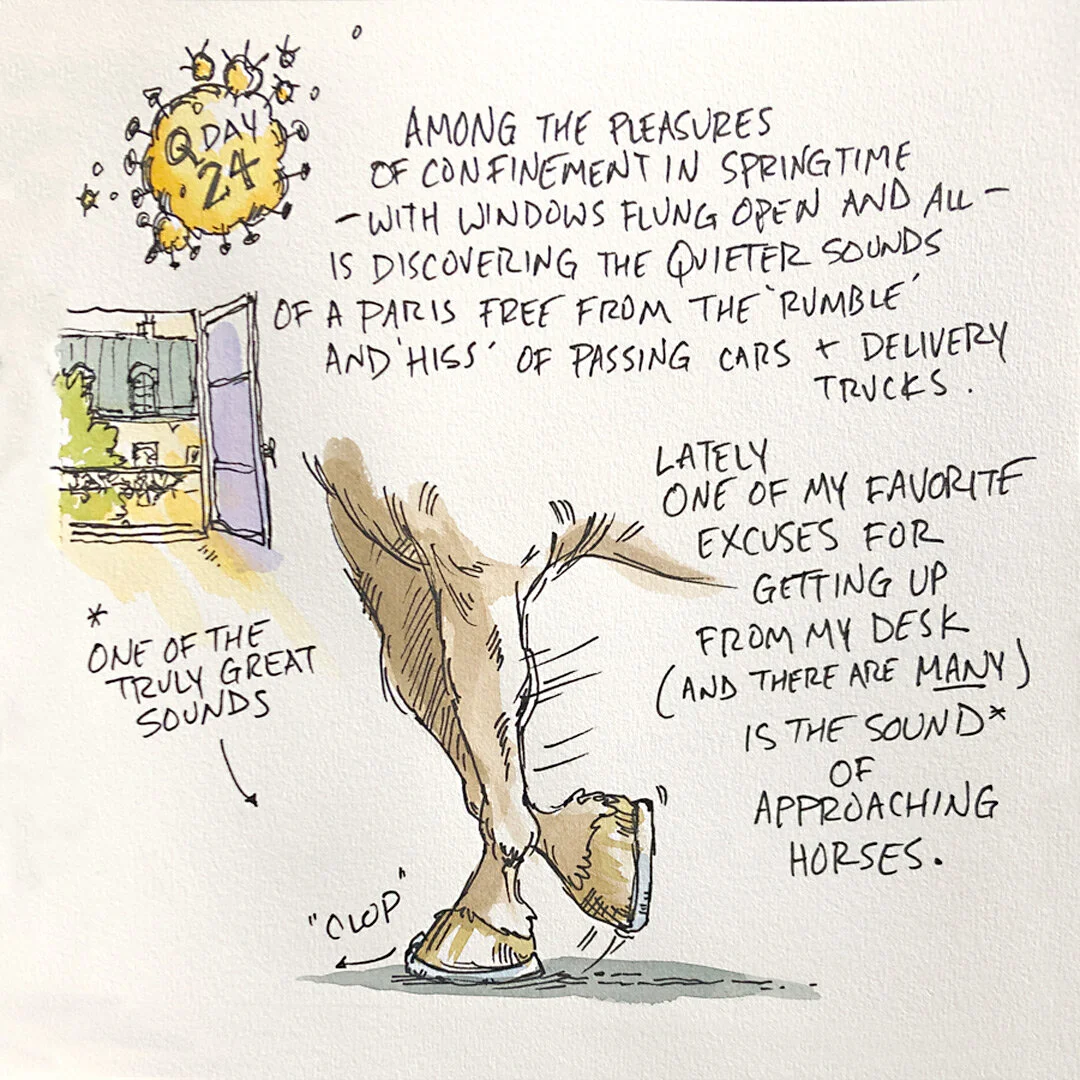 Q DAY
24
AMONG THE PLEASURES
OF CONFINEMENT IN SPRINGTIME
– WITH WINDOWS FLUNG OPEN AND ALL –
IS DISCOVERING THE QUIETER SOUNDS
OF A PARIS FREE FROM THE 'RUMBLE'
AND 'HISS' OF PASSING CARS + DELIVERY
TRUCKS.
LATELY
ONE OF MY FAVORITE
EXCUSES FOR
GETTING UP
FROM MY DESK
(AND THERE ARE MANY)
IS THE SOUND*
OF
APPROACHING
HORSES.
*
ONE OF THE
TRULY GREAT
SOUNDS
"CLOP"